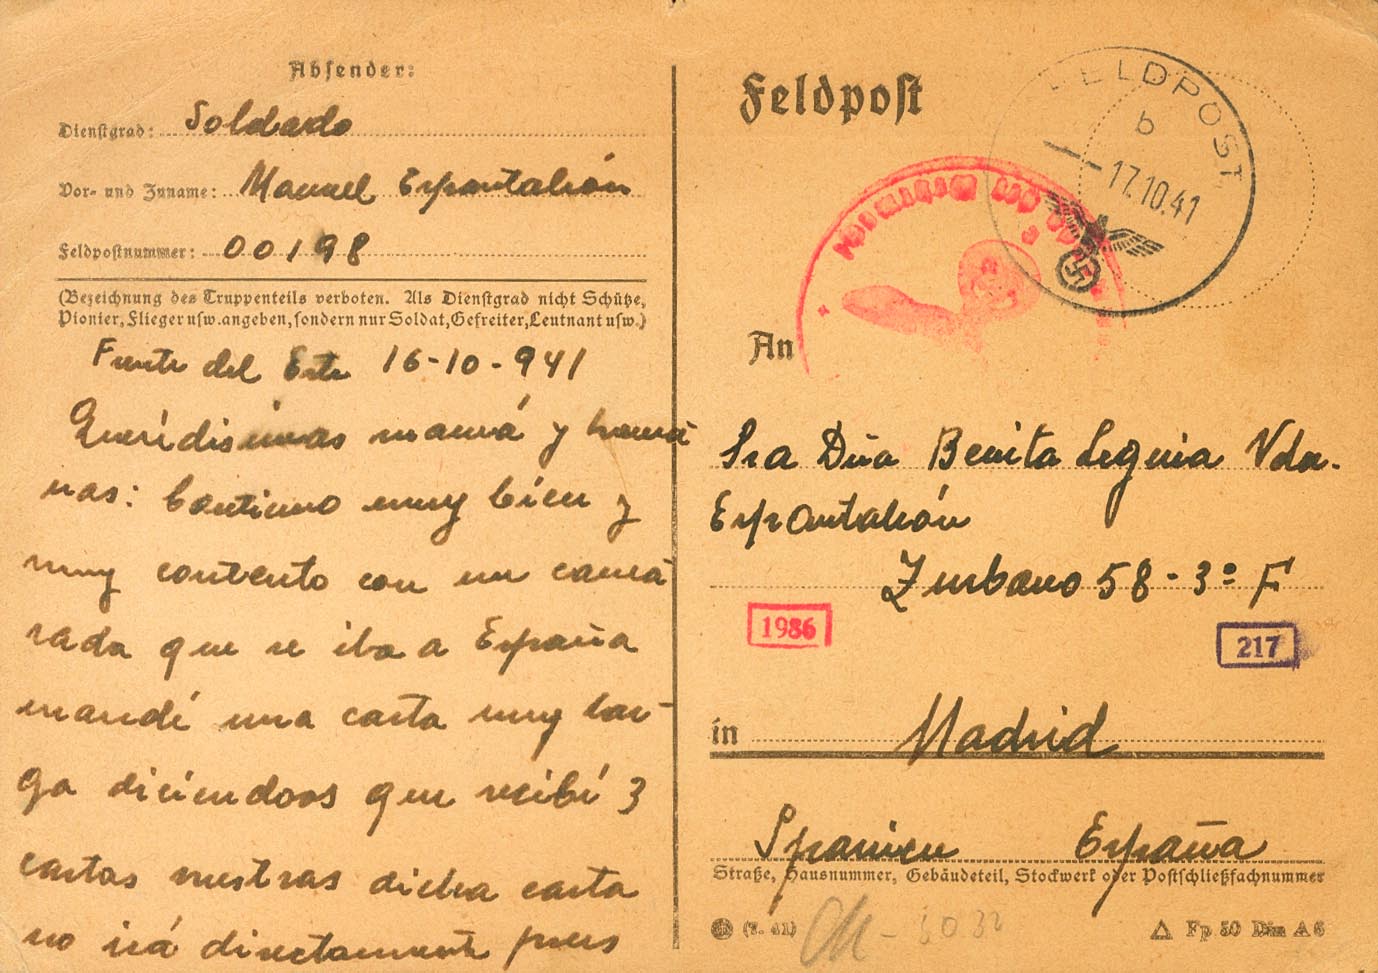 Absender:
Dienstgrad: Soldado
Vor- und Zuname: Manuel Espantaleón
Feldpostnummer: 00198
(Bezeichnung des Truppenteils verboten. Als Dienstgrad nicht Schütze,
Pionier, Flieger usw. angeben, sondern nur Soldat, Gefreiter, Leutnant usw.)
Frente del Este 16-10-941
Queridisimas mamá y herma
nas: Continuo muy bien y
muy contento con un cama
rada que se iba a España
mandé una carta muy lar-
ga diciendoos que recibí 3
cartas vuestras dicha carta
no irá directamente pues
Feldpost
FELDPOST
b
17.10.41
An
Sra Dña Benita Leguia Vda.
Espantaleón
Zurbano 58-3º F
1986
217
in Madrid
Spanien España
Straße, Hausnummer, Gebäudeteil, Stockwerk oder Postschließfachnummer
(7. 41)
Fp 50 Din A 6